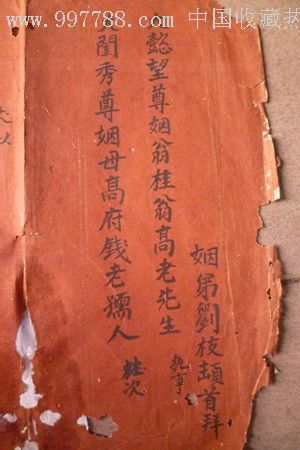 www.997788.com 中国收藏热
姻弟劉枝頡首拜
懿望尊姻翁桂翁高老先生 執事
閨秀尊姻母高府錢老孺人 妝次